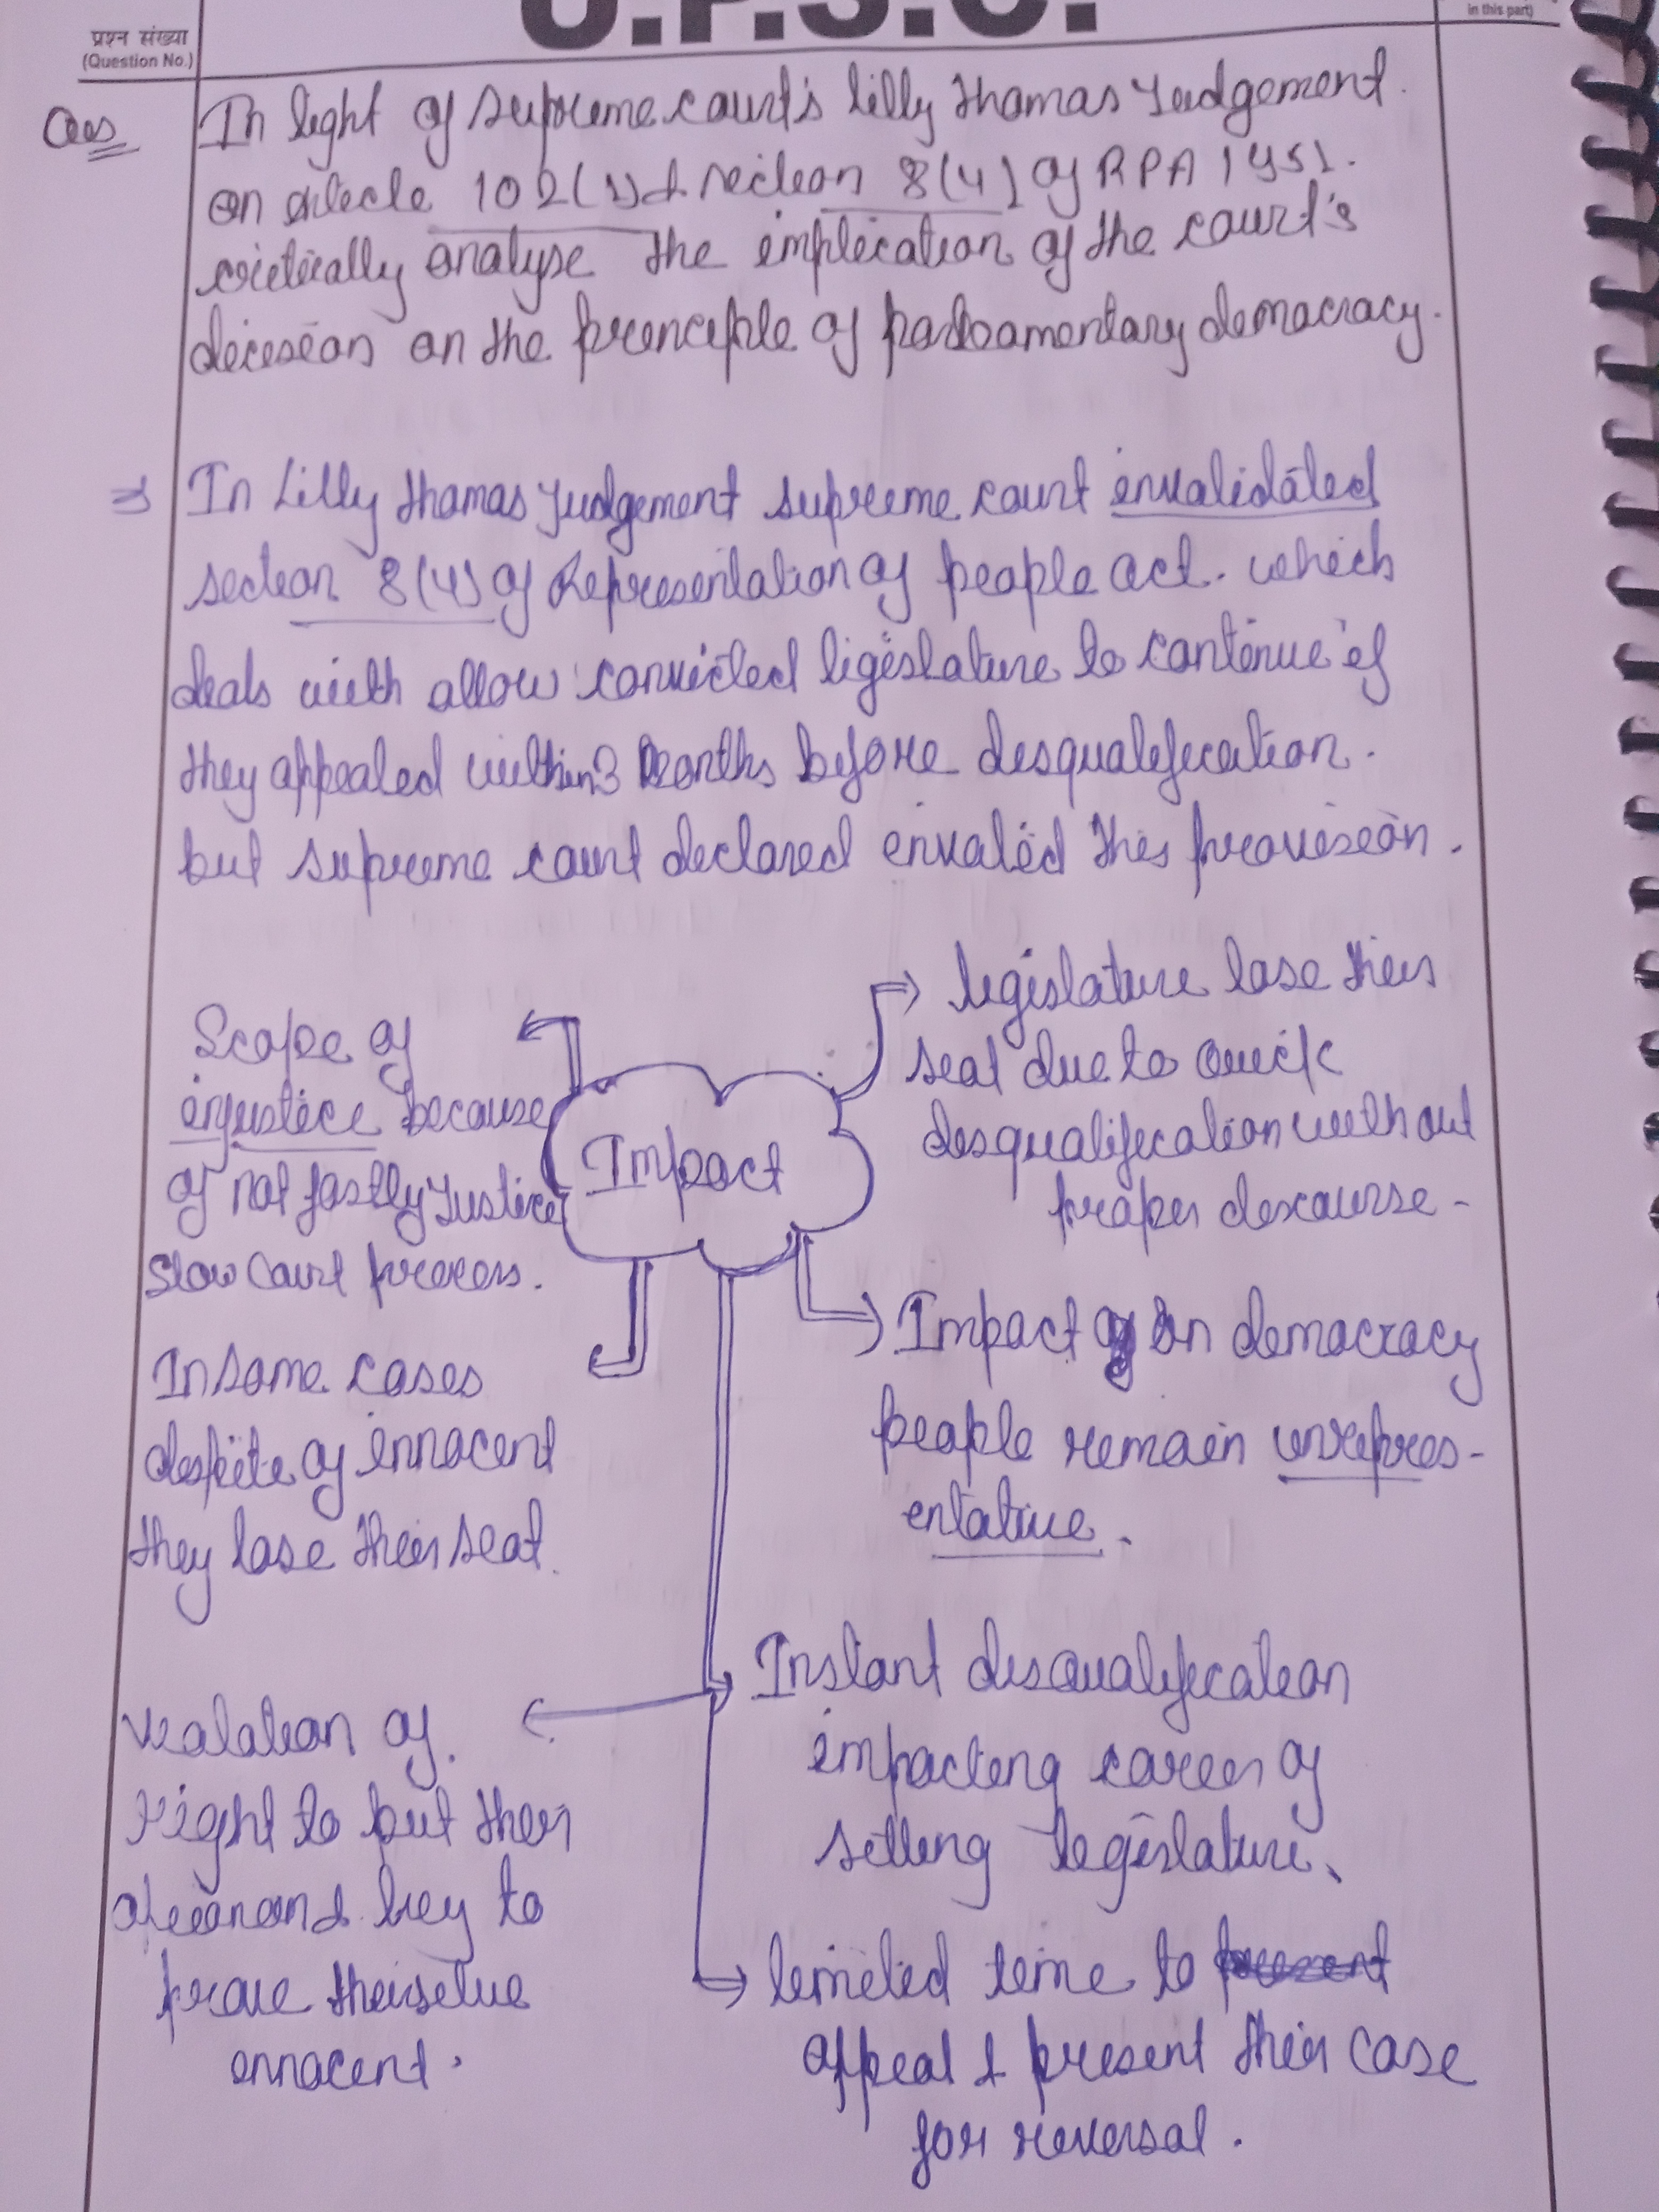 U.P.S.C.
in this part)
प्रश्न संख्या
(Question No.)
Ques
In light of supreme court's lilly thomas Judgement.
on Article 102(1) & section 8(4) of RPA 1951.
critically analyse the implication of the court's
decision on the principle of parliamentary democracy.
⇒ In Lilly thomas Judgement supreme court invalidated
section 8(4) of Representation of people act. which
deals with allow convicted legislature to continue if
they appealed within 3 months before desqualification.
but supreme court declared invalid this provision.
Scope of
injustice because
of not fastly Justice
Slow Court process.
Impact
legislature lose their
seat due to quick
desqualification without
proper discourse -
In some cases
despite of innocent
they lose their seat.
Impact on democracy
people remain unrepres-
entative.
Instant disqualification
impacting career of
sitting legislature.
Vealation of
right to put their
and try to
prove
innocent.
limited time to
appeal & present their case
for reversal.